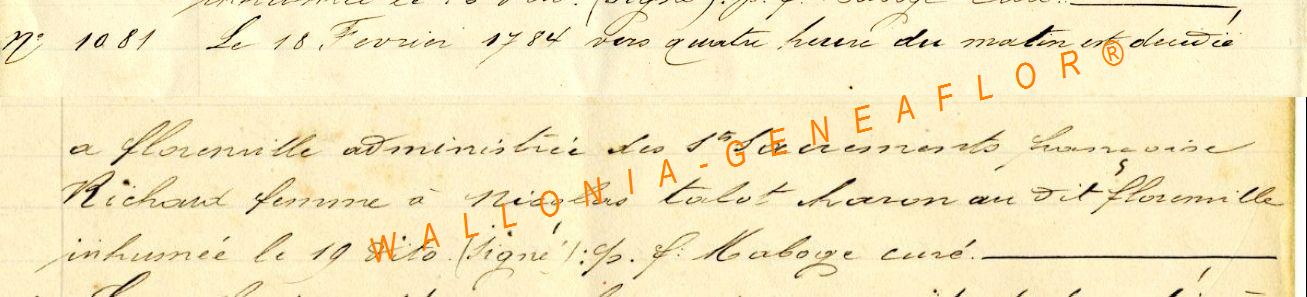 inhumée le 18 (Signé): p. f. Maboge curé.
N° 1081 Le 18 Fevrier 1784 vers quatre heure du matin est decedée
a florenville administrée des Sts Sacrements francoise
Richard femme à Nicolas talot haron au dit florenville
inhumée le 19 dito (Signé): p. f. Maboge curé.
WALLONIA-GENEAFLOR®